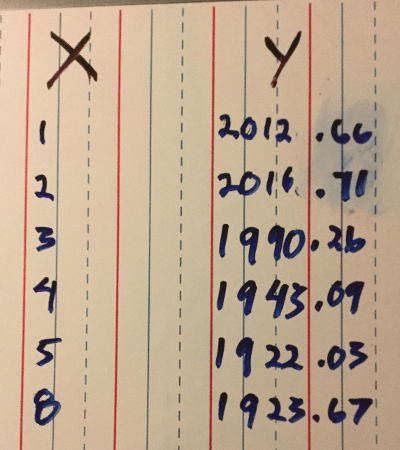 X Y
1 2012.66
2 2016.71
3 1990.26
4 1943.09
5 1922.03
8 1923.67